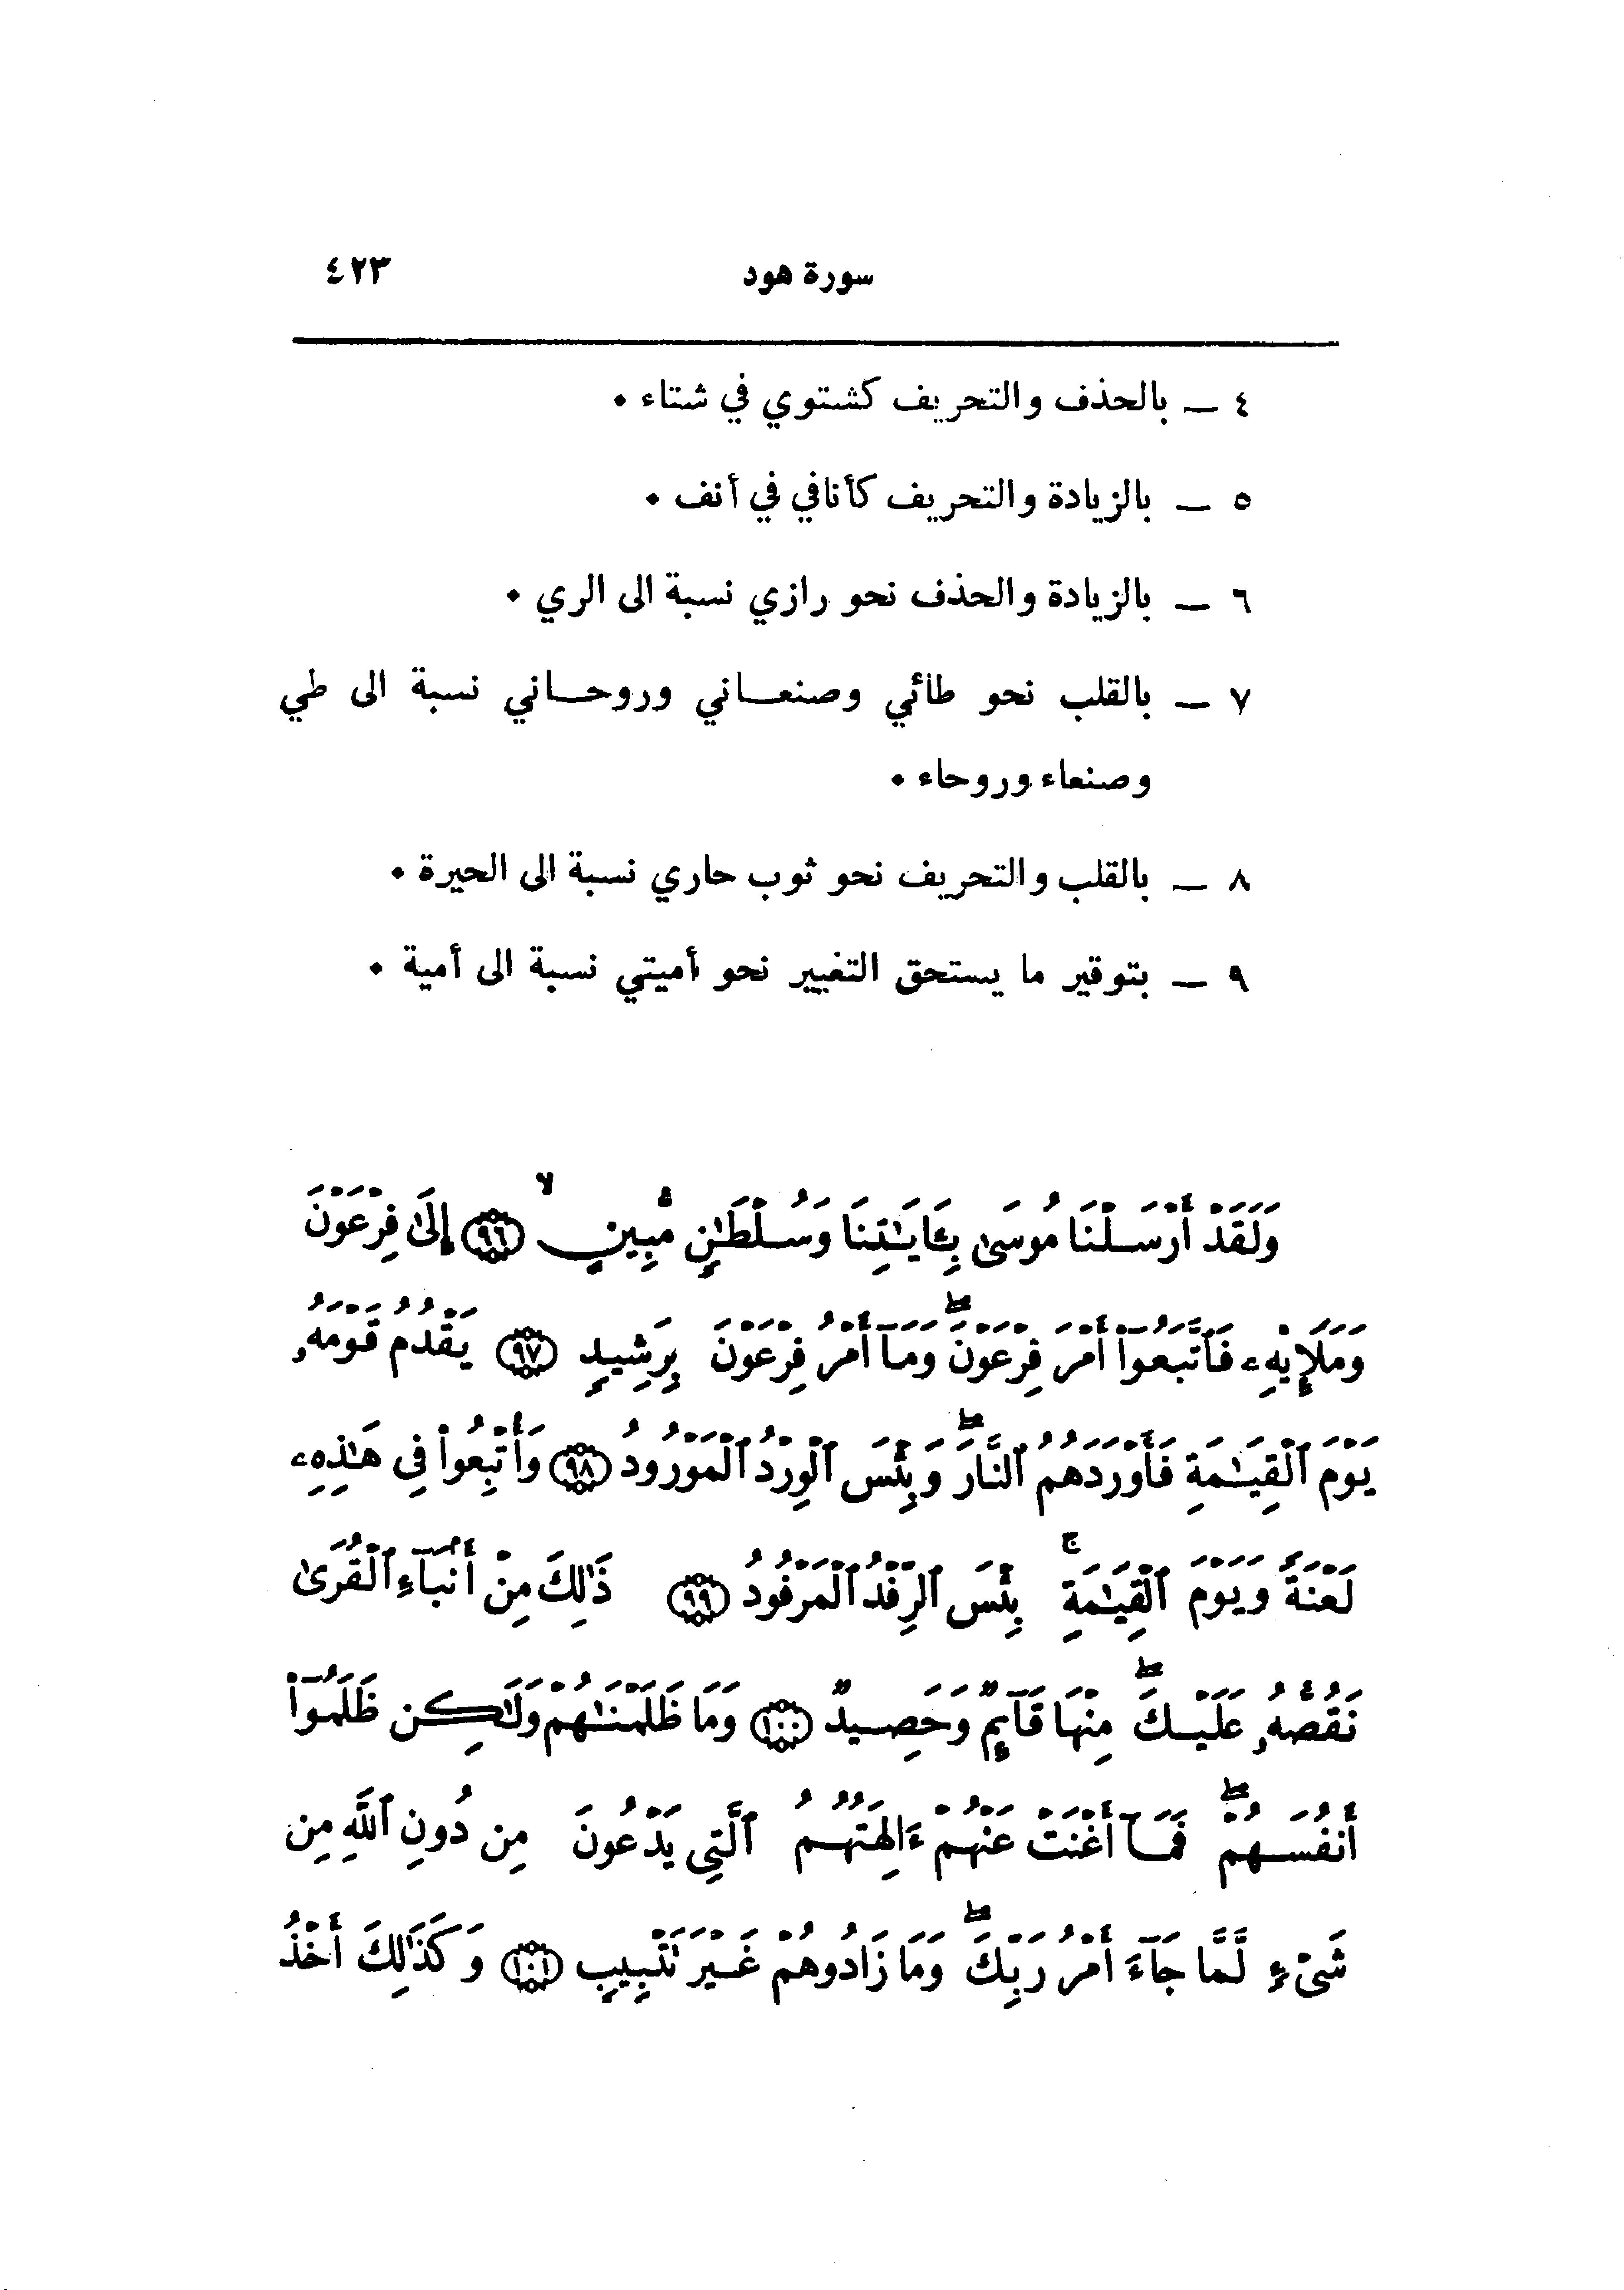 سورة هود ٤٢٣
٤ ــ بالحذف والتحريف كشتوي في شتاء ٠
٥ ــ بالزيادة والتحريف كأنافي في أنف ٠
٦ ــ بالزيادة والحذف نحو رازي نسبة الى الري ٠
٧ ــ بالقلب نحو طائي وصنعـــاني وروحـــاني نسبة الى طي
وصنعاء وروحاء ٠
٨ ــ بالقلب والتحريف نحو ثوب حاري نسبة الى الحيرة ٠
٩ ــ بتوقير ما يستحق التغيير نحو أميتي نسبة الى أمية ٠
وَلَقَدْ أَرْسَلْنَا مُوسَىٰ بِـَٔايَـٰتِنَا وَسُلْطَـٰنٍ مُّبِينٍ ۙ ﴿٩٦﴾ إِلَىٰ فِرْعَوْنَ
وَمَلَإِيْهِۦ فَٱتَّبَعُوٓا۟ أَمْرَ فِرْعَوْنَ ۖ وَمَآ أَمْرُ فِرْعَوْنَ بِرَشِيدٍ ﴿٩٧﴾ يَقْدُمُ قَوْمَهُۥ
يَوْمَ ٱلْقِيَـٰمَةِ فَأَوْرَدَهُمُ ٱلنَّارَ ۖ وَبِئْسَ ٱلْوِرْدُ ٱلْمَوْرُودُ ﴿٩٨﴾ وَأُتْبِعُوا۟ فِى هَـٰذِهِۦ
لَعْنَةً وَيَوْمَ ٱلْقِيَـٰمَةِ ۚ بِئْسَ ٱلرِّفْدُ ٱلْمَرْفُودُ ﴿٩٩﴾ ذَٰلِكَ مِنْ أَنۢبَآءِ ٱلْقُرَىٰ
نَقُصُّهُۥ عَلَيْكَ ۖ مِنْهَا قَآئِمٌ وَحَصِيدٌ ﴿١٠٠﴾ وَمَا ظَلَمْنَـٰهُمْ وَلَـٰكِن ظَلَمُوٓا۟
أَنفُسَهُمْ ۖ فَمَآ أَغْنَتْ عَنْهُمْ ءَالِهَتُهُمُ ٱلَّتِى يَدْعُونَ مِن دُونِ ٱللَّهِ مِن
شَىْءٍ لَّمَّا جَآءَ أَمْرُ رَبِّكَ ۖ وَمَا زَادُوهُمْ غَيْرَ تَتْبِيبٍ ﴿١٠١﴾ وَكَذَٰلِكَ أَخْذُ